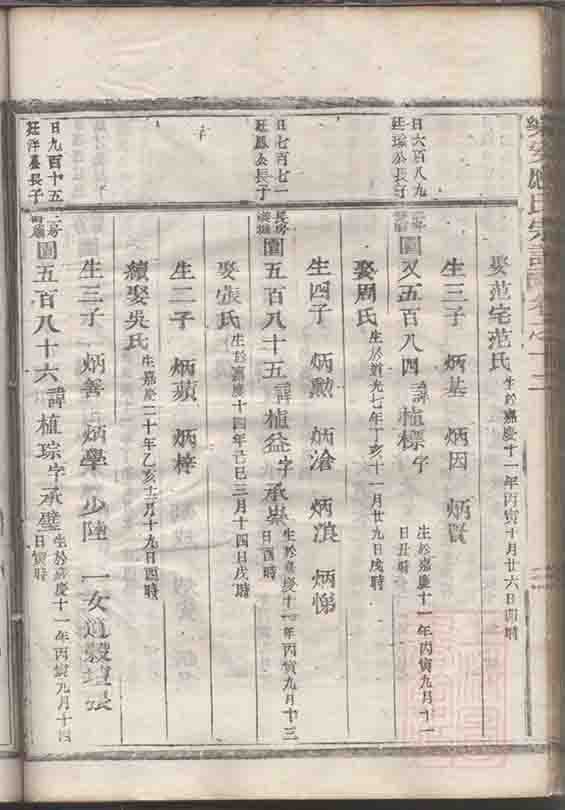 氏宗譜
娶范宅范氏 生於嘉慶十一年丙寅十月廿六日酉時
生三子 炳基 炳因 炳賢
日六百八九
廷瑞公長子
圓又五百八四 諱植標字 生於嘉慶十一年丙寅九月十一
日丑時
娶周氏 生於道光七年丁亥十一月廿九日戌時
生四子 炳勲 炳滄 炳滇 炳悌
日七百七一
廷鳳公長子
長房
圓五百八十五 諱植益字承 生於嘉慶十一年丙寅九月十三
日酉時
娶張氏 生於嘉慶十四年己巳三月十四日戌時
生二子 炳蘋 炳梓
續娶吳氏 生嘉慶二十年乙亥十二月十九日酉時
生三子 炳善 炳學 少陸 一女適
日九百十五
廷洋公長子
圓五百八十六 諱植琮字承璧 生於嘉慶十一年丙寅九月十四
日寅時